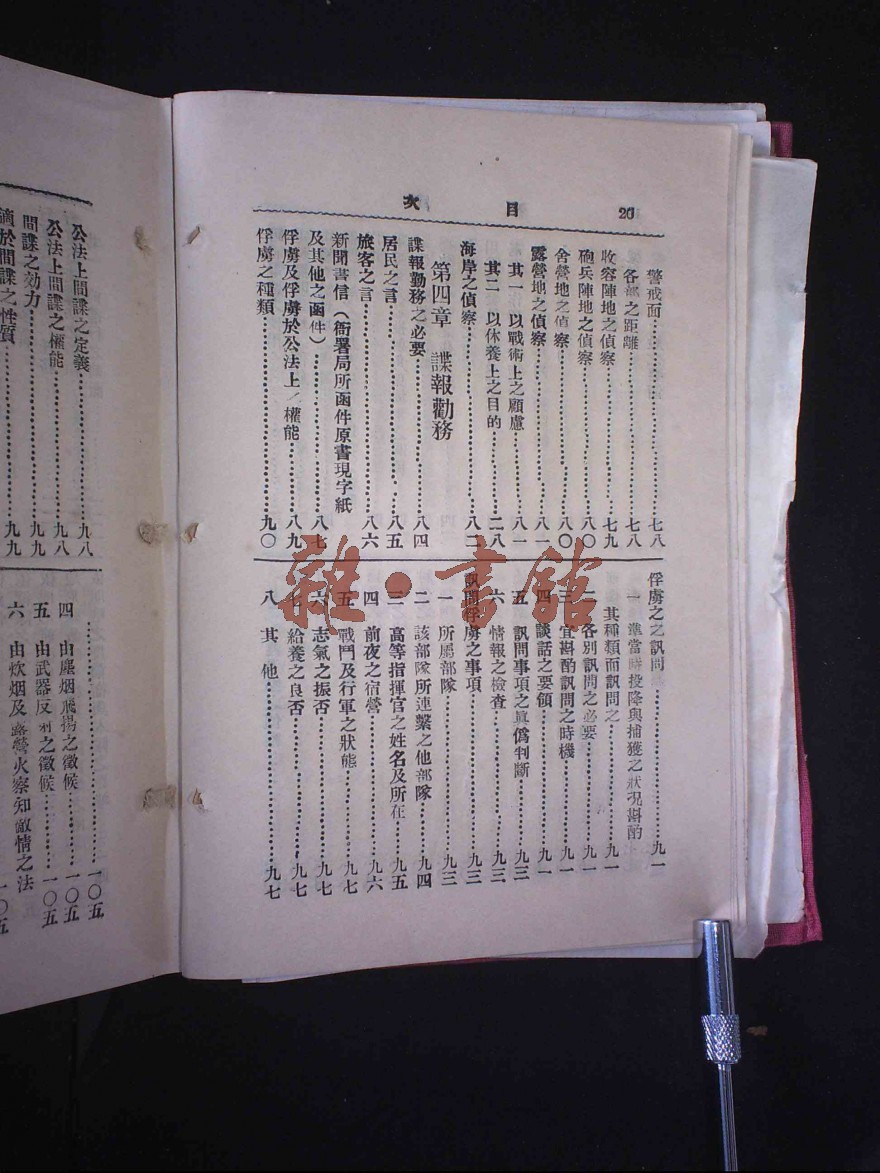 目次 20
警戒面……七八
各部之距離……七八
收容陣地之偵察……七九
砲兵陣地之偵察……八〇
舍營地之偵察……八〇
露營地之偵察……八一
其一 以戰術上之顧慮……八一
其二 以休養上之目的……二八
海岸之偵察……八二
第四章 諜報勤務
諜報勤務之必要……八四
居民之言……八五
旅客之言……八六
新聞書信（衙署局所函件原書現字紙
及其他之函件）……八七
俘虜及俘虜於公法上之權能……八九
俘虜之種類……九〇
俘虜之之訊問……九一
一 準當時投降與捕獲之狀況斟酌
其種類而訊問之……九一
二 各別訊問之必要……九一
三 宜斟酌訊問之時機……九一
四 談話之要領……九一
五 訊問事項之眞僞判斷……九三
六 情報之檢查……九三
訊問俘虜之事項……九三
一 所屬部隊……九三
二 該部隊所連繫之他部隊……九四
三 高等指揮官之姓名及所在……九五
四 前夜之宿營……九六
五 戰鬥及行軍之狀態……九七
六 志氣之振否……九七
七 給養之良否……九七
八 其他……九七
公法上間諜之定義……九八
公法上間諜之權能……九八
間諜之効力……九九
適於間諜之性質……九九
……一〇五
四 由塵烟飛揚之徵候……一〇五
五 由武器反射之徵候……一〇五
六 由炊烟及露營火察知敵情之法
……一〇五
雜·書館